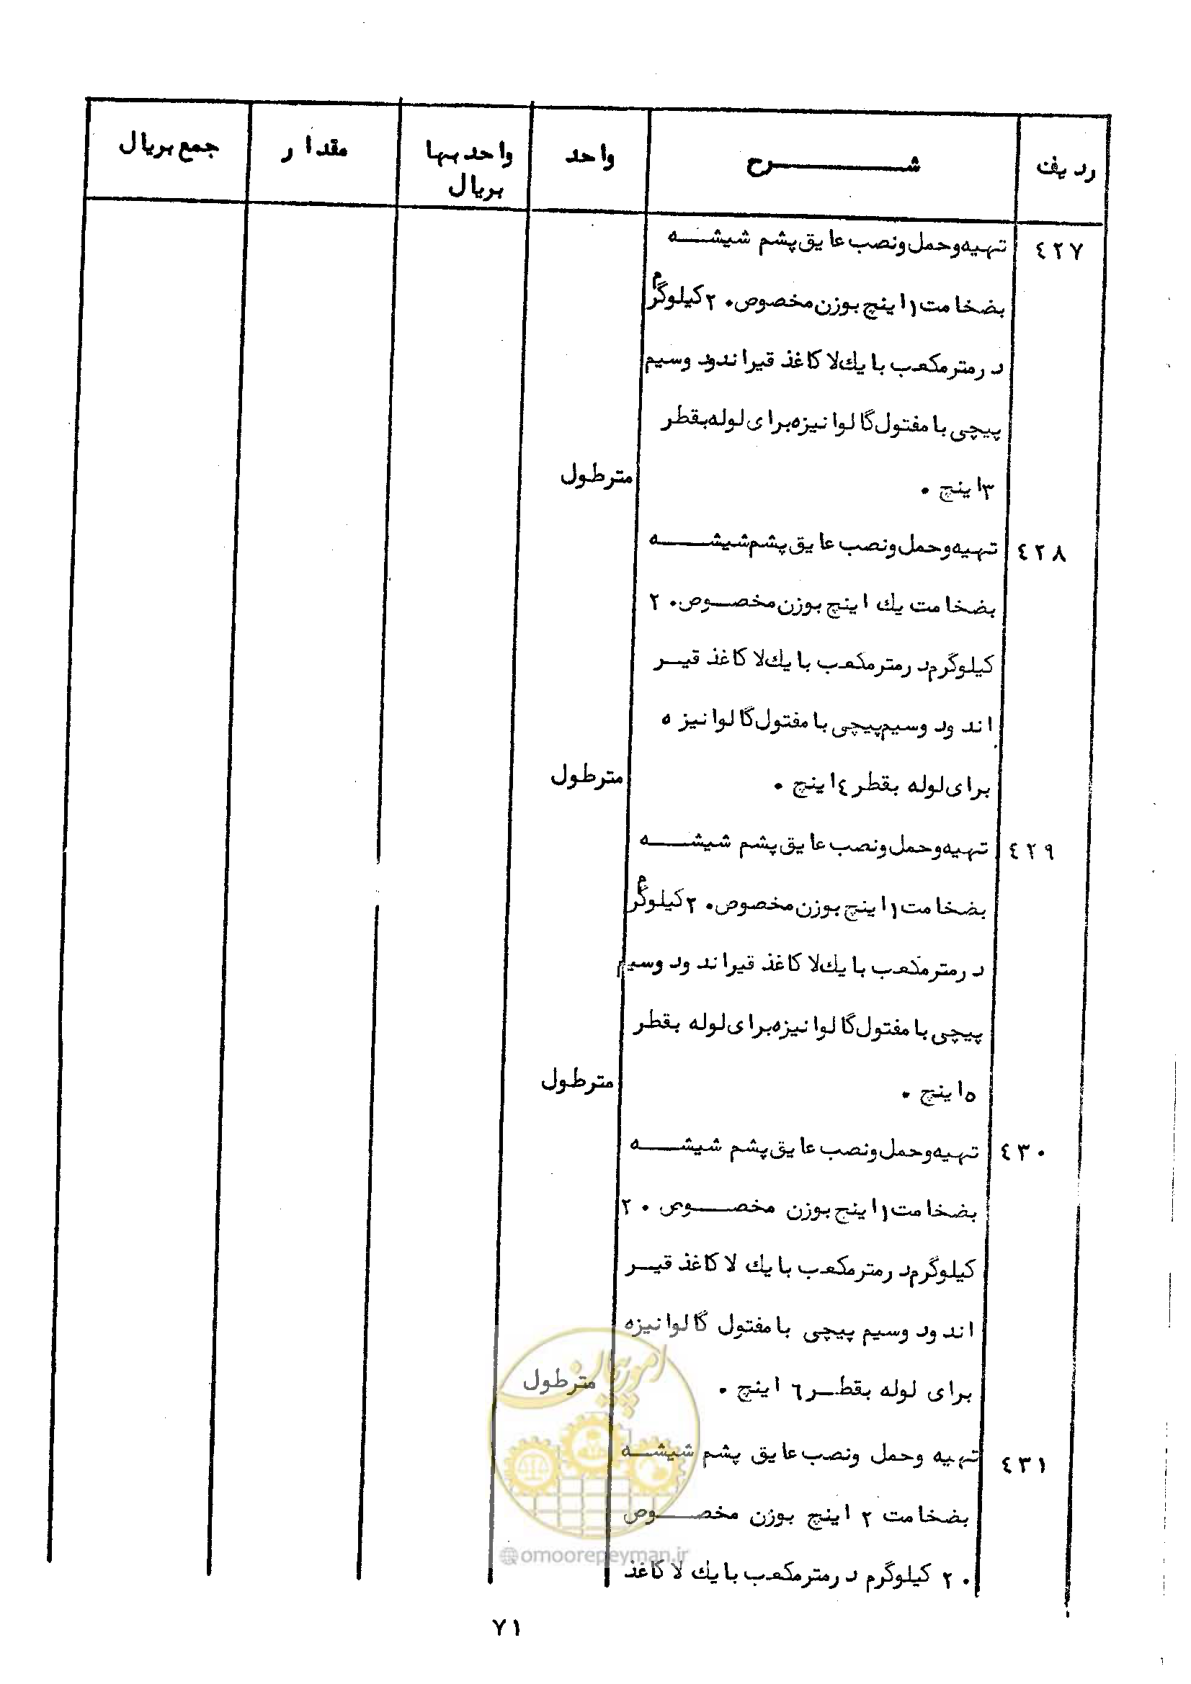 ردیف شرح واحد واحدبها مقدار جمع بریال
بریال
٤٢٧ تهیه و حمل و نصب عایق پشم شیشه
بضخامت ۱ اینچ بوزن مخصوص ۲۰ کیلوگرم
در متر مکعب با یک لا کاغذ قیراندود و سیم
پیچی با مفتول گالوانیزه برای لوله بقطر
۳ اینچ . متر طول
٤٢٨ تهیه و حمل و نصب عایق پشم شیشه
بضخامت یک اینچ بوزن مخصوص ۲۰
کیلوگرم در متر مکعب با یک لا کاغذ قیر
اندود و سیم پیچی با مفتول گالوانیزه
برای لوله بقطر ٤ اینچ . متر طول
٤٢٩ تهیه و حمل و نصب عایق پشم شیشه
بضخامت ۱ اینچ بوزن مخصوص ۲۰ کیلوگرم
در متر مکعب با یک لا کاغذ قیراندود و سیم
پیچی با مفتول گالوانیزه برای لوله بقطر
٥ اینچ . متر طول
٤٣٠ تهیه و حمل و نصب عایق پشم شیشه
بضخامت ۱ اینچ بوزن مخصوص ۲۰
کیلوگرم در متر مکعب با یک لا کاغذ قیر
اندود و سیم پیچی با مفتول گالوانیزه
برای لوله بقطر ٦ اینچ . متر طول
٤٣١ تهیه و حمل و نصب عایق پشم شیشه
بضخامت ۲ اینچ بوزن مخصوص
۲۰ کیلوگرم در متر مکعب با یک لا کاغذ
امور پیمان
@omoorepeyman.ir
۷۱